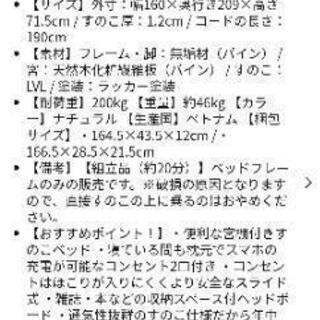 【サイズ】外寸：幅160×奥行き209×高さ
71.5cm / すのこ厚：1.2cm / コードの長さ：
190cm
• 【素材】フレーム・脚：無垢材（パイン） /
宮：天然木化粧繊維板（パイン） / すのこ：
LVL / 塗装：ラッカー塗装
• 【耐荷重】200kg 【重量】約46kg 【カラ
ー】ナチュラル 【生産国】ベトナム 【梱包
サイズ】・164.5×43.5×12cm /・
166.5×28.5×21.5cm
• 【備考】【組立品（約20分）】ベッドフレー
ムのみの販売です。※破損の原因となります
ので、直接すのこの上に乗るのはおやめくだ
さい。
• 【おすすめポイント！】・便利な宮棚付きす
のこベッド ・寝ている間も枕元でスマホの
充電が可能なコンセント2口付き ・コンセン
トはほこりが入りにくくより安全なスライド
式 ・雑誌・本などの収納スペース付ヘッドボ
ード ・通気性抜群のすのこ仕様だから年中